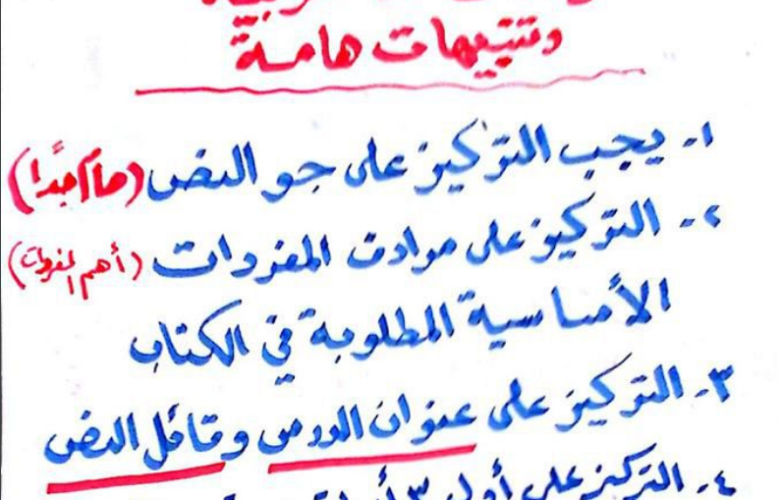 وتنبيهات هامة
١- يجب التركيز على جو النص (هام جدًا)
٢- التركيز على مرادف المفردات (أهم المفردات)
الأساسية المطلوبة في الكتاب
٣- التركيز على عنوان الدرس وقائل النص
٤- التركيز على أول ٣